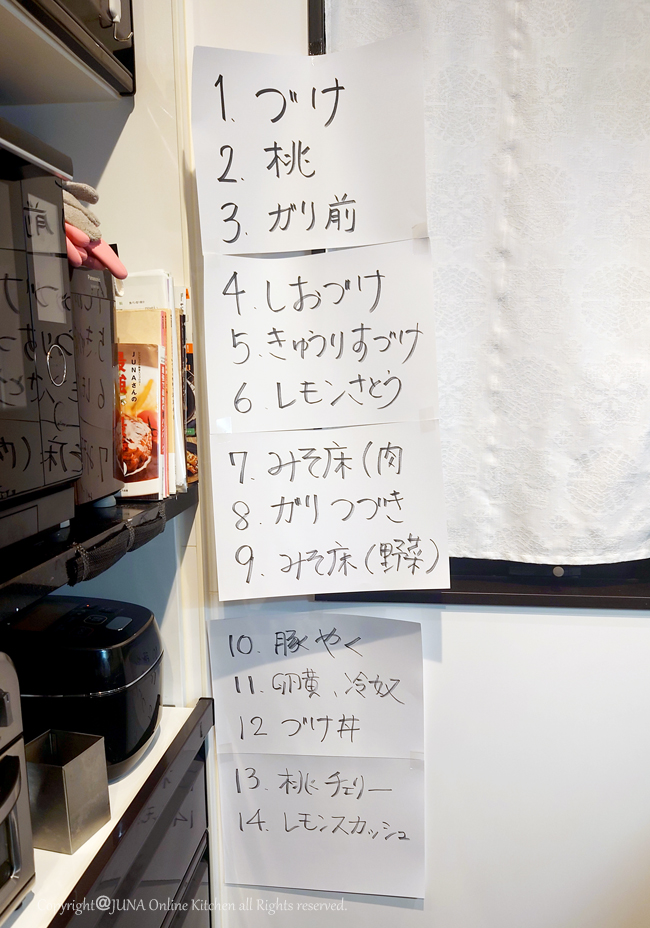 1. づけ
2. 桃
3. ガリ前
4. しおづけ
5. きゅうりすづけ
6. レモンさとう
7. みそ床(肉
8. ガリつづき
9. みそ床(野菜)
10. 豚やく
11. 卵黄、冷奴
12 づけ丼
13. 桃チェリー
14. レモンスカッシュ
JUNAさんの
Copyright@JUNA Online Kitchen all Rights reserved.